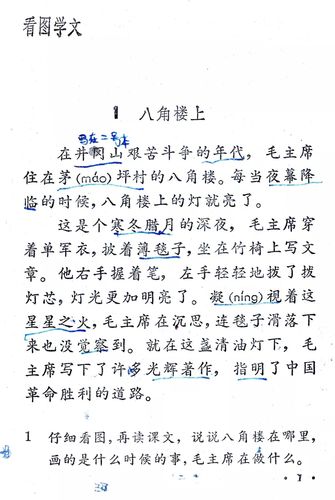 看图学文
1 八角楼上
在井冈山艰苦斗争的年代，毛主席
住在茅(máo)坪村的八角楼。每当夜幕降
临的时候，八角楼上的灯就亮了。
这是个寒冬腊月的深夜，毛主席穿
着单军衣，披着薄毯子，坐在竹椅上写文
章。他右手握着笔，左手轻轻地拨了拨
灯芯，灯光更加明亮了。凝(níng)视着这
星星之火，毛主席在沉思，连毯子滑落下
来也没觉察到。就在这盏清油灯下，毛
主席写下了许多光辉著作，指明了中国
革命胜利的道路。
1 仔细看图，再读课文，说说八角楼在哪里，
画的是什么时候的事，毛主席在做什么。
· 1 ·